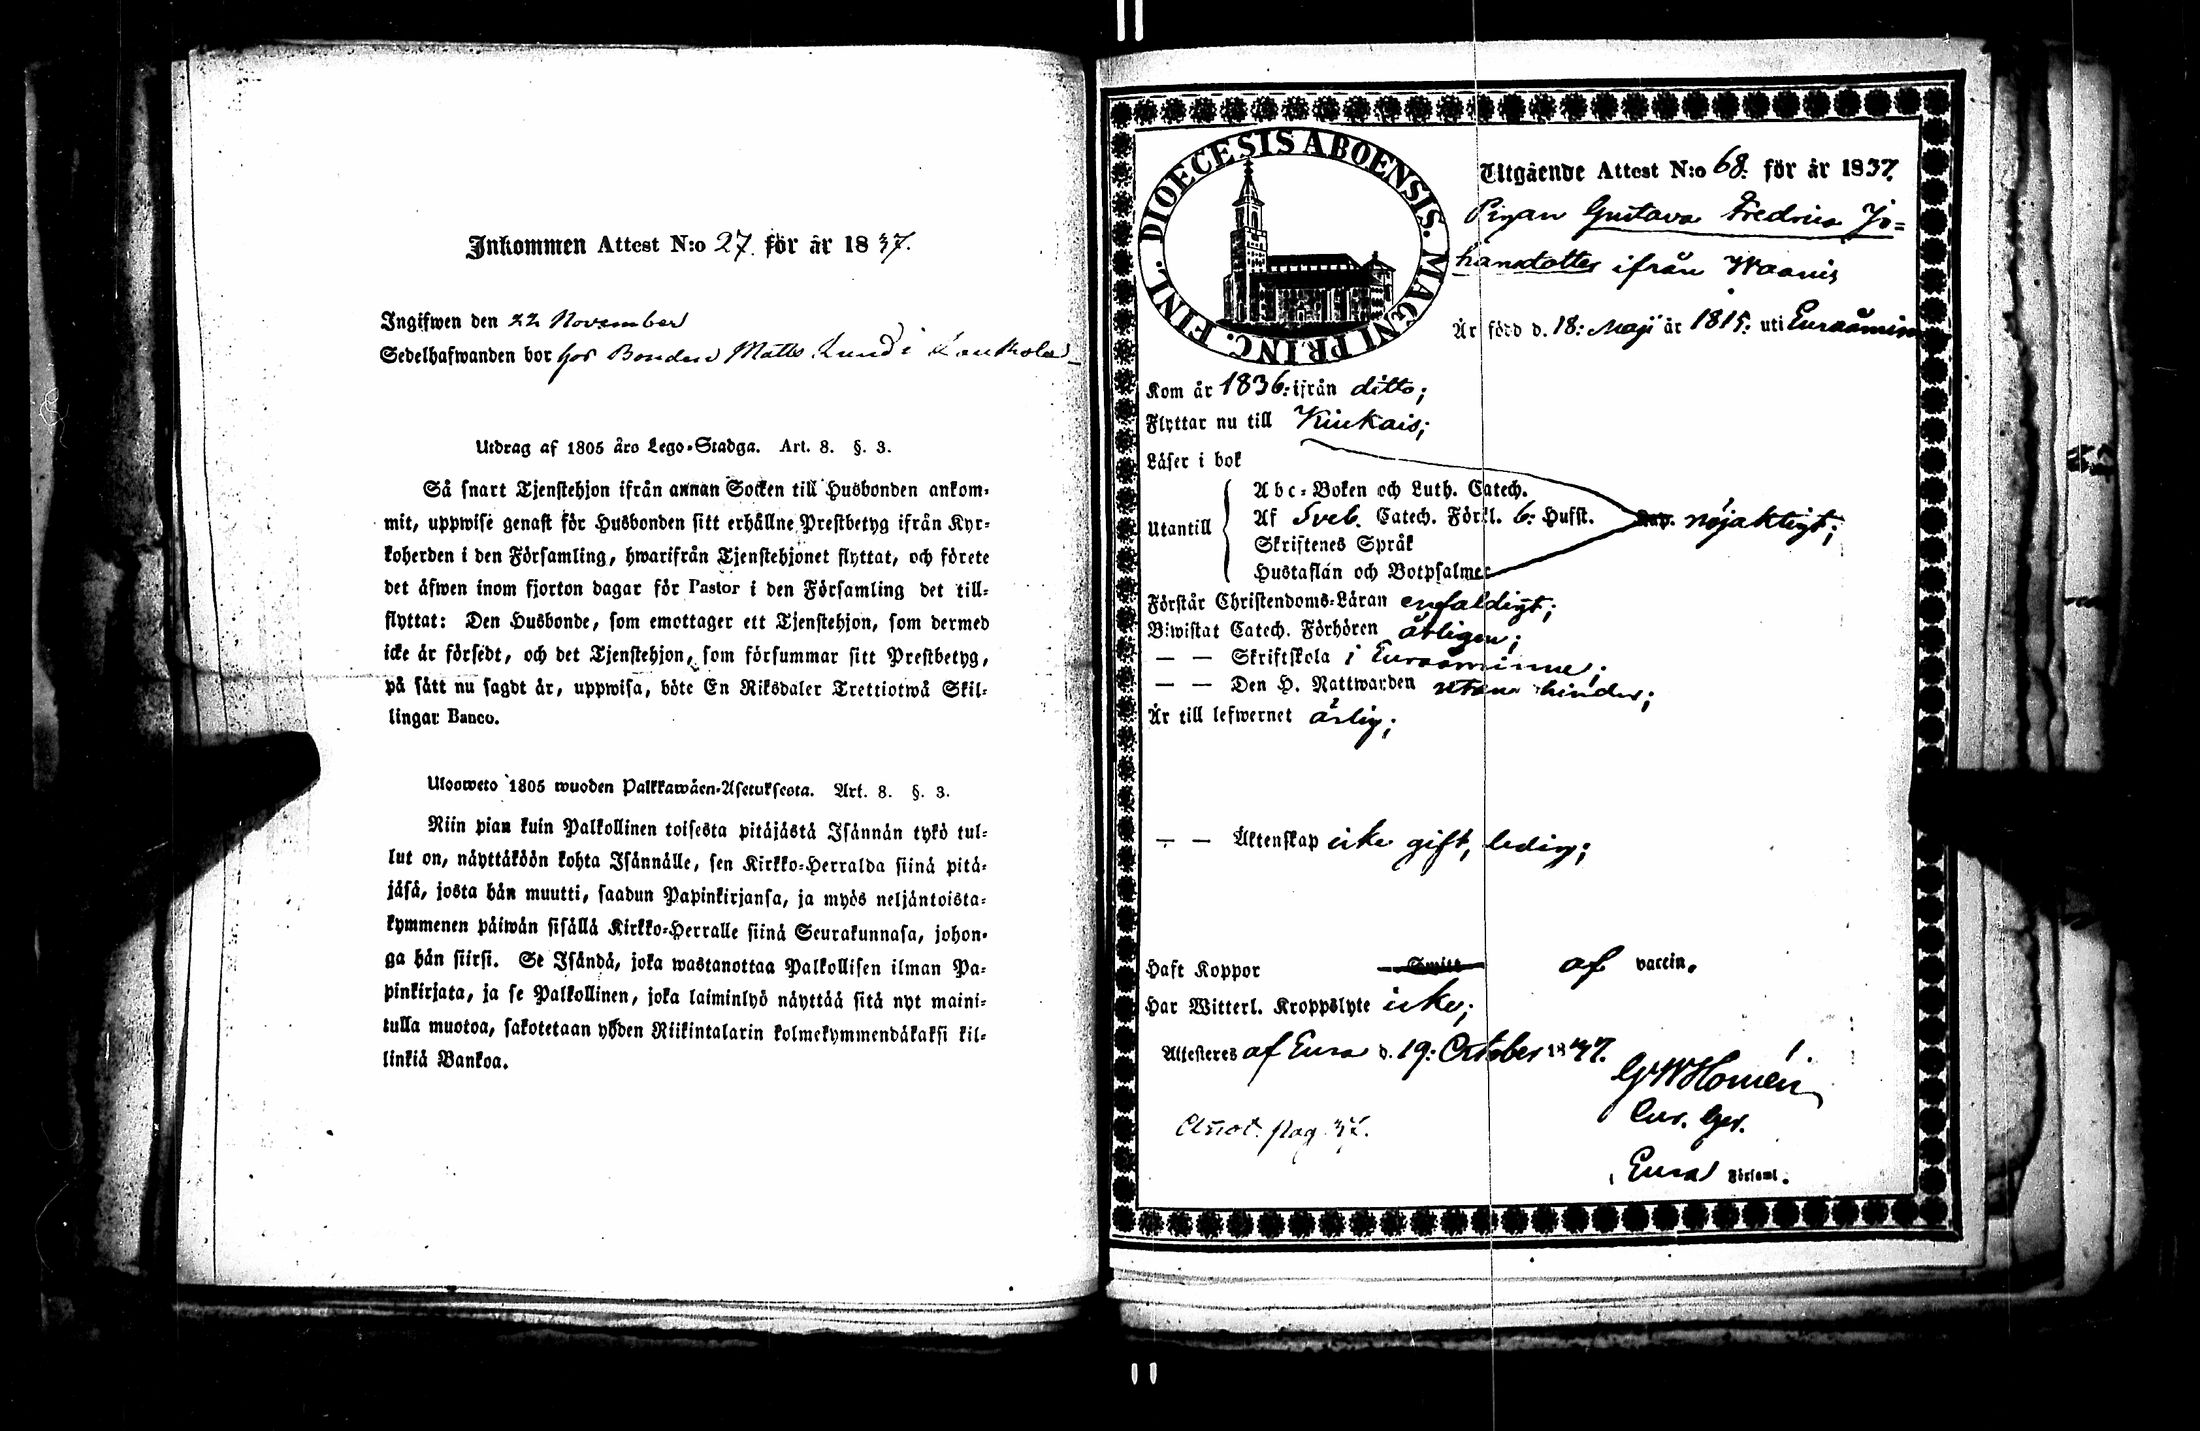 Inkommen Attest N:o 27. för år 1837.
Ingifwen den 22 November
Sedelhafwanden bor hos Bonden Matts Lund i Kankola
Utdrag af 1805 års Lego-Stadga. Art. 8. §. 3.
Så snart Tjenstehjon ifrån annan Socken till Husbonden ankom-
mit, uppwise genast för Husbonden sitt erhållne Prestbetyg ifrån Kyr-
koherden i den Församling, hwarifrån Tjenstehjonet flyttat, och förete
det äfwen inom fjorton dagar för Pastor i den Församling det till-
flyttat: Den Husbonde, som emottager ett Tjenstehjon, som dermed
icke är försedt, och det Tjenstehjon, som försummar sitt Prestbetyg,
på sätt nu sagdt är, uppwisa, böte En Riksdaler Trettiotwå Skil-
lingar Banco.
Ulooweto 1805 wuoden Palkkawäen-Asetuksesta. Art. 8. §. 3.
Niin pian kuin Palkollinen toisesta pitäjästä Isännän tykö tul-
lut on, näyttäköön kohta Isännälle, sen Kirkko-Herralda siinä pitä-
jäsä, josta hän muutti, saadun Papinkirjansa, ja myös neljäntoista-
kymmenen päiwän sisällä Kirkko-Herralle siinä Seurakunnasa, johon-
ga hän siirsi. Se Isändä, joka wastanottaa Palkollisen ilman Pa-
pinkirjata, ja se Palkollinen, joka laiminlyö näyttää sitä nyt maini-
tulla muotoa, sakotetaan yhden Riikintalarin kolmekymmendäkaksi kil-
linkiä Bankoa.
DIOECESIS ABOENSIS. MAGNI PRINC. FINL.
Utgående Attest N:o 68. för år 1837.
Pigan Gustava Fredrica Jo=
hansdotter ifrån Waanis
Är född d. 18: Maji år 1815: uti Euraåmin
Kom år 1836: ifrån ditto;
Flyttar nu till Kiukais;
Läser i bok
Utantill
Abc-Boken och Luth. Catech.
Af Sveb. Catech. Förkl. 6: Hufst. nöjaktigt;
Skriftenes Språk
Hustaflan och Botpsalmer
Förstår Christendoms-Läran enfaldigt;
Biwistat Catech. Förhören årligen;
— — Skriftskola i Euraåminne;
— — Den H. Nattwarden utan hinder;
Är till lefwernet ärlig;
— — Äktenskap icke gift, ledig;
Haft Koppor Smitt af vaccin.
Har Witterl. Kroppslyte icke;
Attesteres af Eura d. 19: October 1837.
GWHomén
Cur. Ger.
Annot. pag. 37.
Eura Församl.